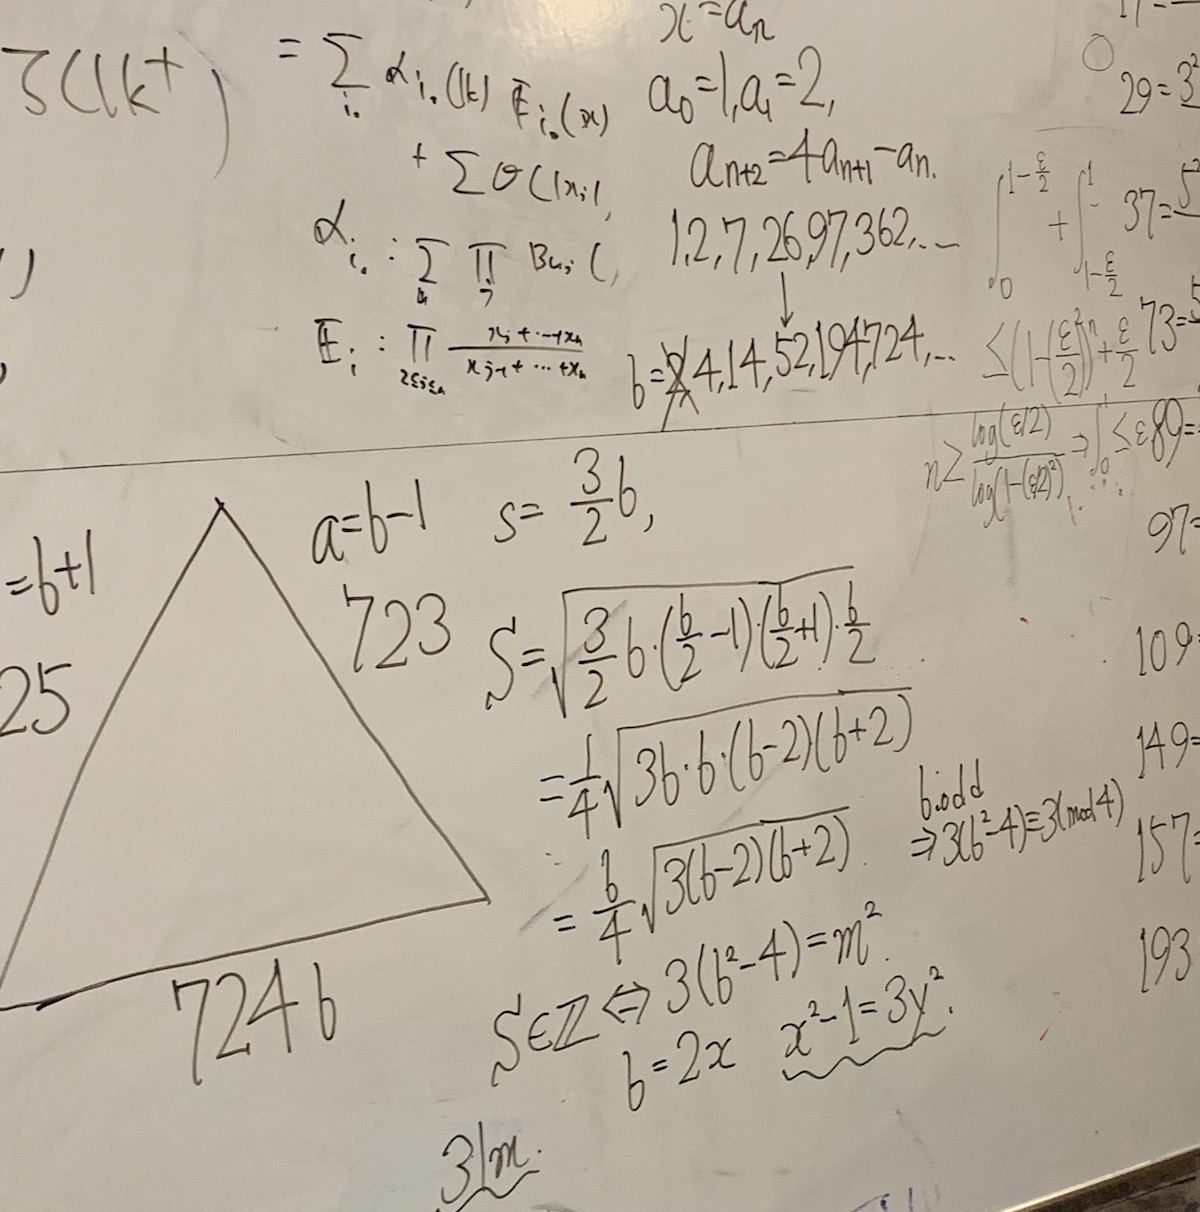 ζ(lk⁺)
= Σ_{i.} α_{i.}(lk) E_{i.}(x)
+ Σ O(|x_i|,
α_{i.} : Σ Π B_{u_j}(,
E_i : Π_{2≤j≤n} (x_j + ⋯ + x_n)/(x_{j-1} + ⋯ + x_n)
x = a_n
a_0=1, a_1=2,
a_{n+2}=4a_{n+1}-a_n.
1,2,7,26,97,362,...
↓
b=2̸ 4,14,52,194,724,...
∫_0^{1-ε/2} + ∫_{1-ε/2}^1
≤(1-(ε/2)²)^n+ε/2
n≥log(ε/2)/log(1-(ε/2)²) ⇒ ∫_0^1 ≤ε
17=
29=3²
37=5²
73=
89=
97=
109=
149=
157=
193
=b+1
25
a=b-1
723
724 b
s=3/2 b,
S=√(3/2 b·(b/2-1)·(b/2+1)·b/2)
=1/4 √(3b·b·(b-2)(b+2))
=b/4 √(3(b-2)(b+2))
b:odd
⇒3(b²-4)≡3(mod 4)
S∈ℤ⇔3(b²-4)=m².
b=2x x²-1=3y².
3|m.